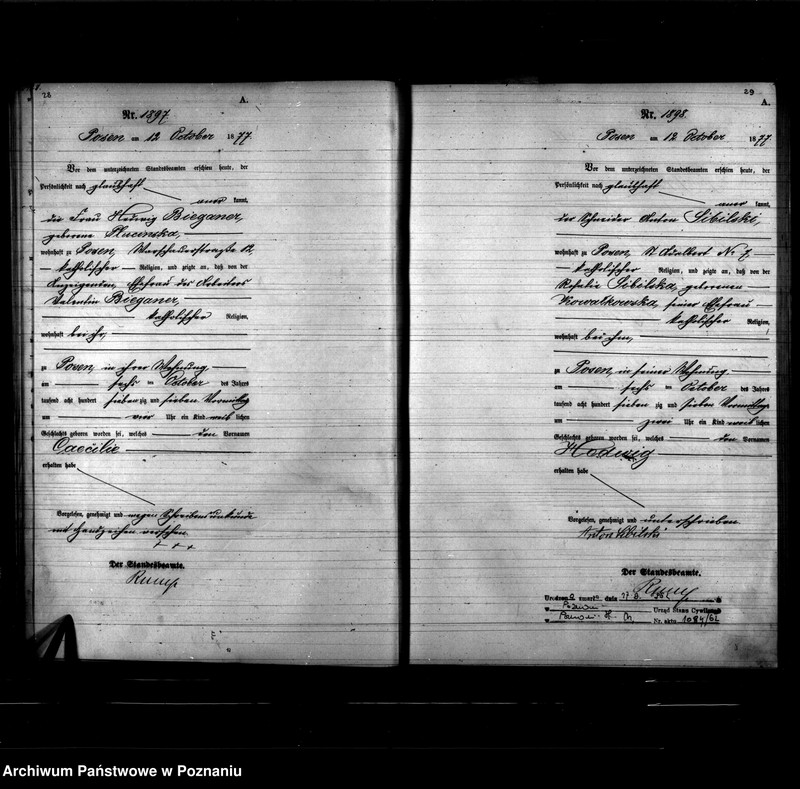 28
A.
Nr. 1897
Posen am 12 October 1877
Vor dem unterzeichneten Standesbeamten erschien heute, der
Persönlichkeit nach glaubhaft
aner kannt,
die Frau Hedwig Bieganer,
geborene Plucinska,
wohnhaft zu Posen, Warschauerstraße 12,
katholischer Religion, und zeigte an, daß von der
Anzeigenden, Ehefrau des Arbeiters
Valentin Bieganer,
katholischer Religion,
wohnhaft bei ihr,
zu Posen in ihrer Wohnung
am sechs ten October des Jahres
tausend acht hundert sieben zig und sieben Vormittags
um vier Uhr ein Kind weib lichen
Geschlechts geboren worden sei, welches den Vornamen
Caecilie
erhalten habe
Vorgelesen, genehmigt und wegen Schreibensunkunde
mit Handzeichen versehen
+ + +
Der Standesbeamte.
29
A.
Nr. 1898
Posen am 12 October 1877
Vor dem unterzeichneten Standesbeamten erschien heute, der
Persönlichkeit nach glaubhaft
aner kannt,
der Schneider Anton Sibilski,
wohnhaft zu Posen, St Adalbert No 7,
katholischer Religion, und zeigte an, daß von der
Rosalie Sibilska, geborenen
Kowalkowska, seiner Ehefrau
katholischer Religion,
wohnhaft bei ihm,
zu Posen, in seiner Wohnung
am sechs ten October des Jahres
tausend acht hundert sieben zig und sieben Vormittags
um zwei Uhr ein Kind weib lichen
Geschlechts geboren worden sei, welches den Vornamen
Hedwig
erhalten habe
Vorgelesen, genehmigt und unterschrieben
Anton Sibilski
Der Standesbeamte.
dnia
Urząd Stanu Cywilnego
Nr. aktu 1084/62
Archiwum Państwowe w Poznaniu